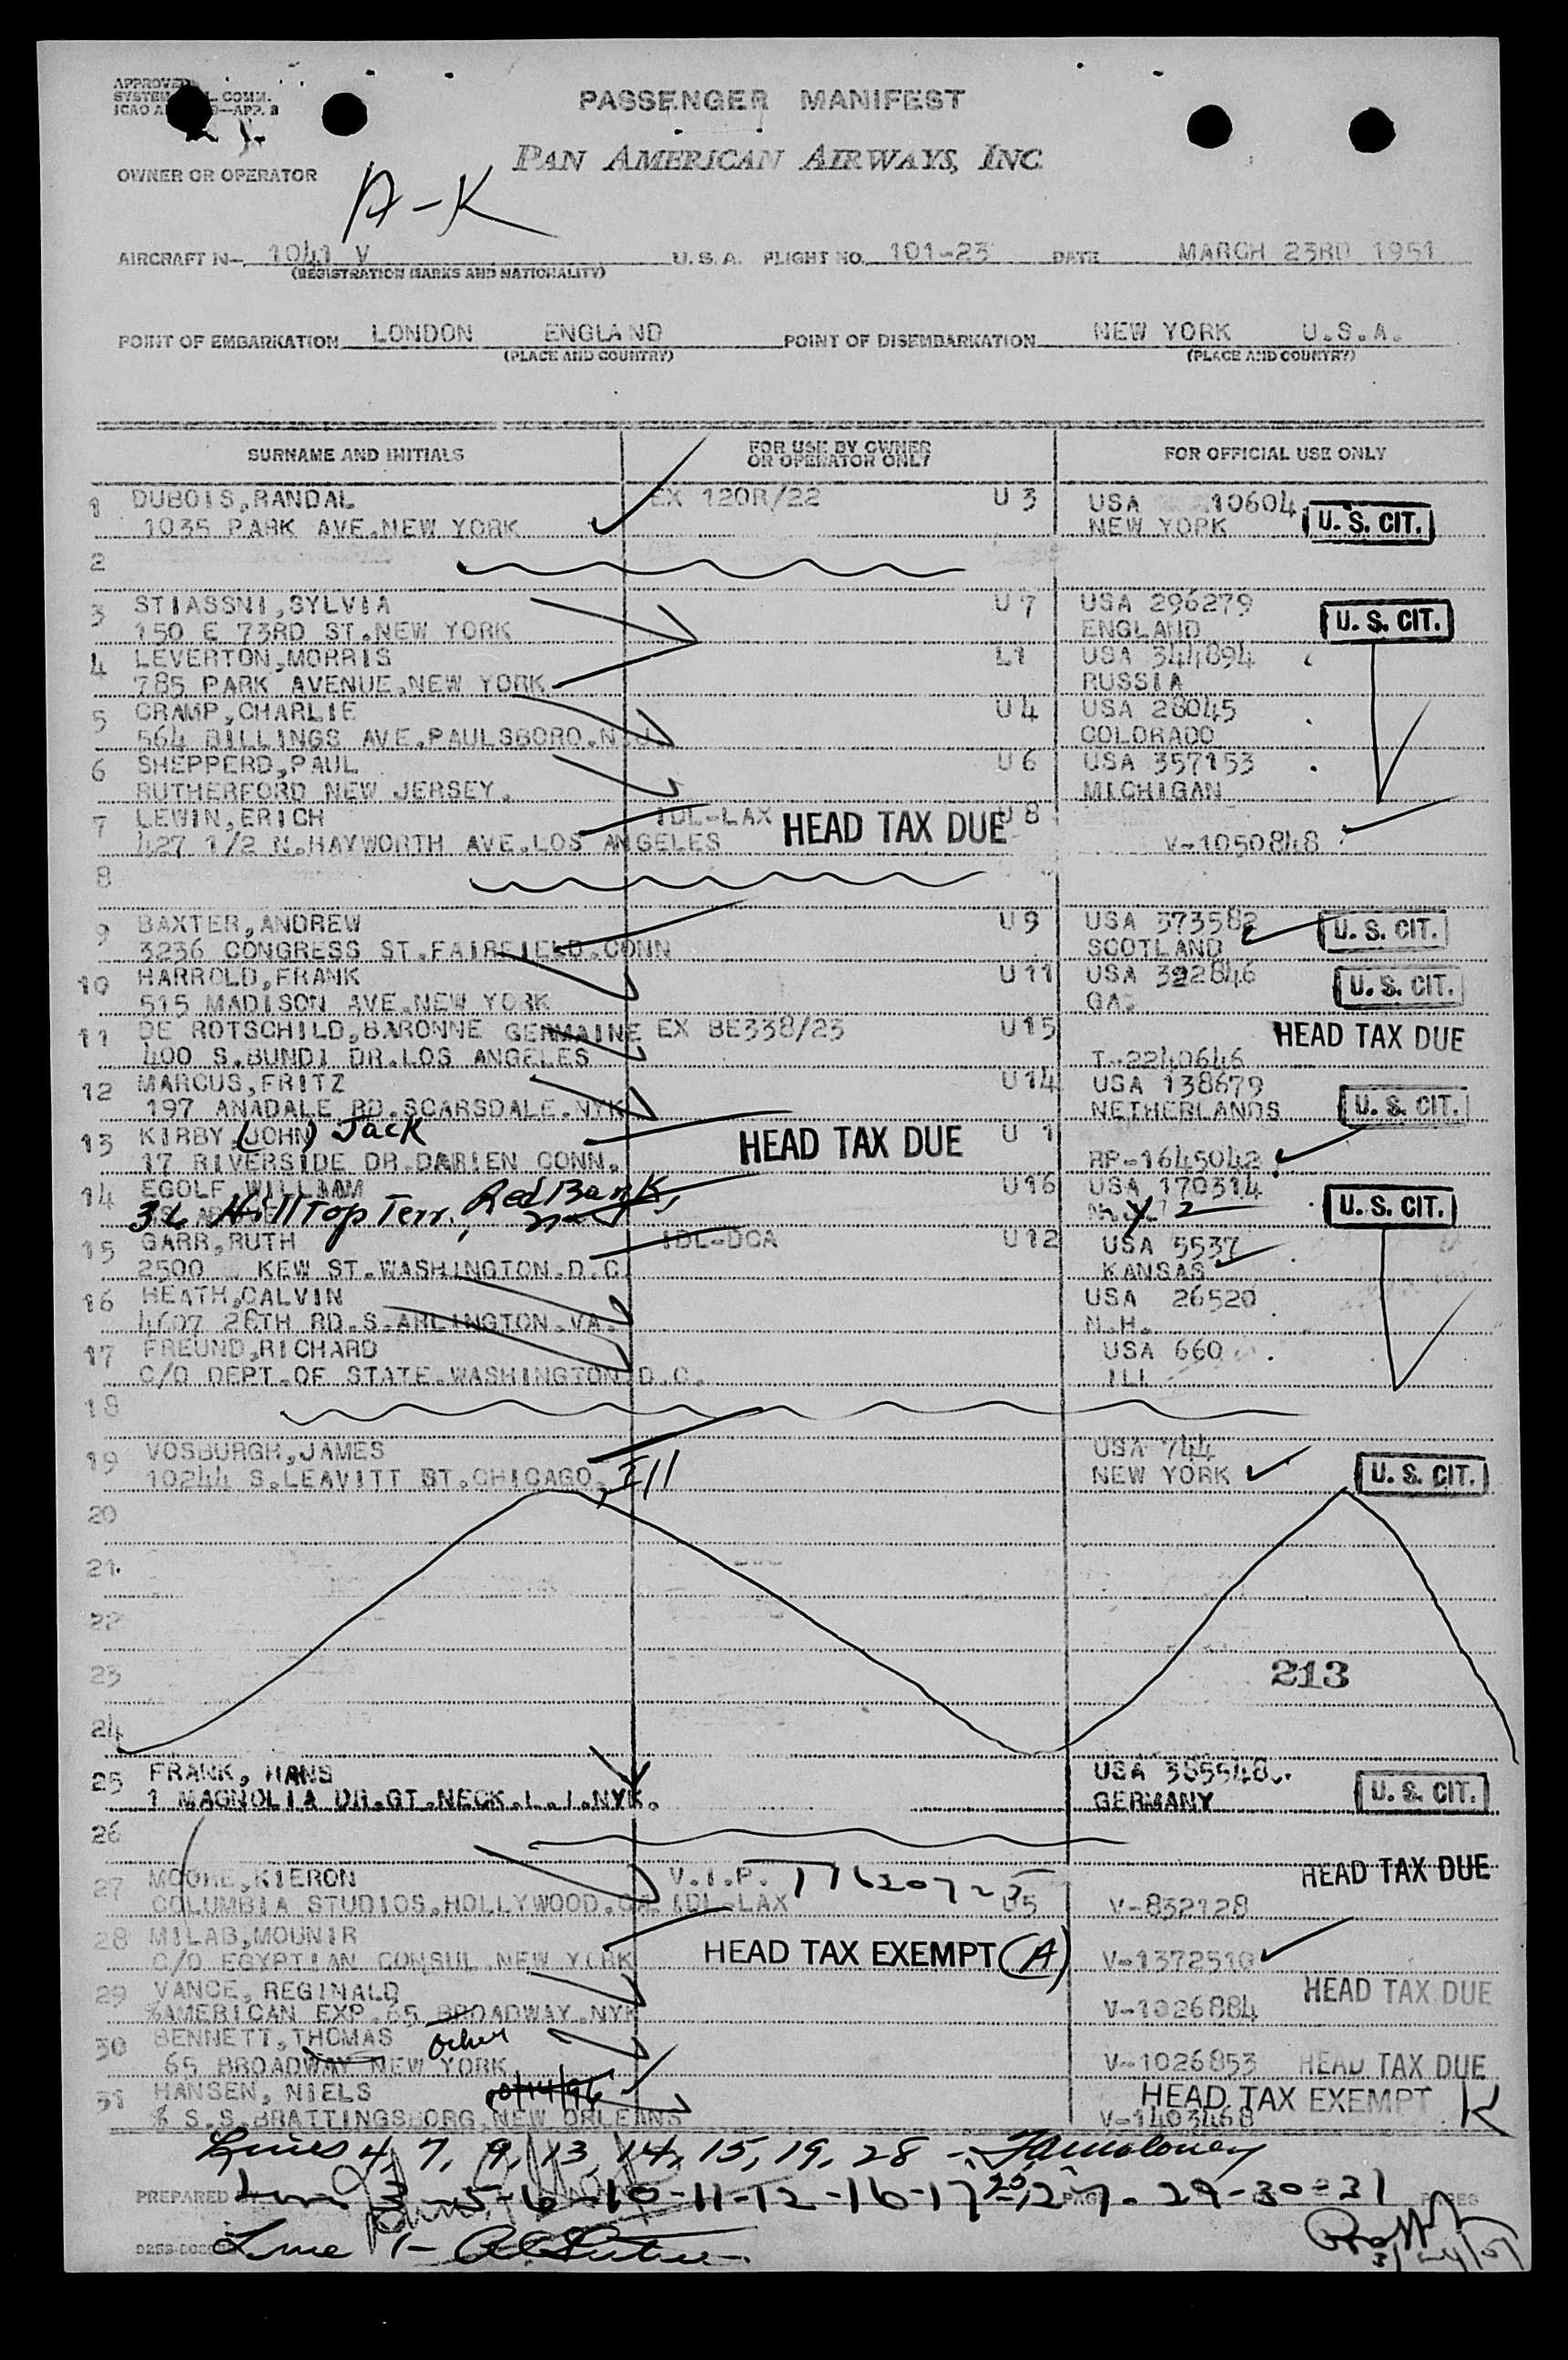 APPROVED
SYSTEM COMM.
PASSENGER MANIFEST
PAN AMERICAN AIRWAYS, INC
OWNER OR OPERATOR
A-K
AIRCRAFT N- 1041 V U. S. A. FLIGHT NO. 101-23 DATE MARCH 23RD 1951
(REGISTRATION MARKS AND NATIONALITY)
POINT OF EMBARKATION LONDON ENGLAND POINT OF DISEMBARKATION NEW YORK U.S.A.
(PLACE AND COUNTRY) (PLACE AND COUNTRY)
SURNAME AND INITIALS FOR USE BY OWNER OR OPERATOR ONLY FOR OFFICIAL USE ONLY
1 DUBOIS,RANDAL EX 120R/22 U 3 USA 10604
1035 PARK AVE.NEW YORK NEW YORK U. S. CIT.
2
3 STIASSNI,SYLVIA U 7 USA 296279
150 E 73RD ST.NEW YORK ENGLAND U. S. CIT.
4 LEVERTON,MORRIS L1 USA 344894
785 PARK AVENUE.NEW YORK RUSSIA
5 CRAMP,CHARLIE U 4 USA 28045
564 BILLINGS AVE.PAULSBORO.N.J COLORADO
6 SHEPPERD,PAUL U 6 USA 357153
RUTHERFORD NEW JERSEY. MICHIGAN
7 LEWIN,ERICH IDL-LAX HEAD TAX DUE U 8
427 1/2 N.HAYWORTH AVE.LOS ANGELES V-1050848
8
9 BAXTER,ANDREW U 9 USA 373582 U. S. CIT.
3236 CONGRESS ST.FAIRFIELD.CONN SCOTLAND
10 HARROLD,FRANK U 11 USA 322846 U. S. CIT.
515 MADISON AVE.NEW YORK GA.
11 DE ROTSCHILD,BARONNE GERMAINE EX BE338/23 U15 HEAD TAX DUE
400 S.BUNDI DR.LOS ANGELES T-2240646
12 MARCUS,FRITZ U14 USA 138679
197 ANADALE RD.SCARSDALE.NYK NETHERLANDS U. S. CIT.
13 KIRBY,(JOHN) Jack HEAD TAX DUE U 1
17 RIVERSIDE DR.DARIEN CONN. RP-1645042
14 EGOLF,WILLIAM U16 USA 170314
36 Hilltop Terr. Red Bank, U. S. CIT.
15 GARR,RUTH IDL-DCA U12 USA 5537
2500 KEW ST.WASHINGTON.D.C. KANSAS
16 HEATH,CALVIN USA 26520
4607 28TH RD.S.ARLINGTON.VA. N.H.
17 FREUND,RICHARD USA 660
C/O DEPT.OF STATE.WASHINGTON.D.C. ILL
18
19 VOSBURGH,JAMES USA 744
10244 S.LEAVITT ST.CHICAGO, Ill NEW YORK U. S. CIT.
20
21
22
23 213
24
25 FRANK, HANS USA 385548
1 MAGNOLIA DR.GT.NECK.L.I.NYK. GERMANY U. S. CIT.
26
27 MOORE,KIERON V.I.P. HEAD TAX DUE
COLUMBIA STUDIOS.HOLLYWOOD.CA IDL-LAX U5 V-832128
28 MILAB,MOUNIR HEAD TAX EXEMPT (A)
C/O EGYPTIAN CONSUL.NEW YORK V-1372510
29 VANCE, REGINALD HEAD TAX DUE
%AMERICAN EXP.65 BROADWAY.NYK V-1026884
30 BENNETT,THOMAS
65 BROADWAY NEW YORK V-1026853 HEAD TAX DUE
31 HANSEN, NIELS 10/14/96 HEAD TAX EXEMPT K
% S.S.BRATTINGSBORG.NEW ORLEANS V-1403468
Lines 4, 7, 9, 13, 14, 15, 19, 28 -
PREPARED 3-5-6-10-11-12-16-17-25-27-29-30-31 PAGES
Line 1-